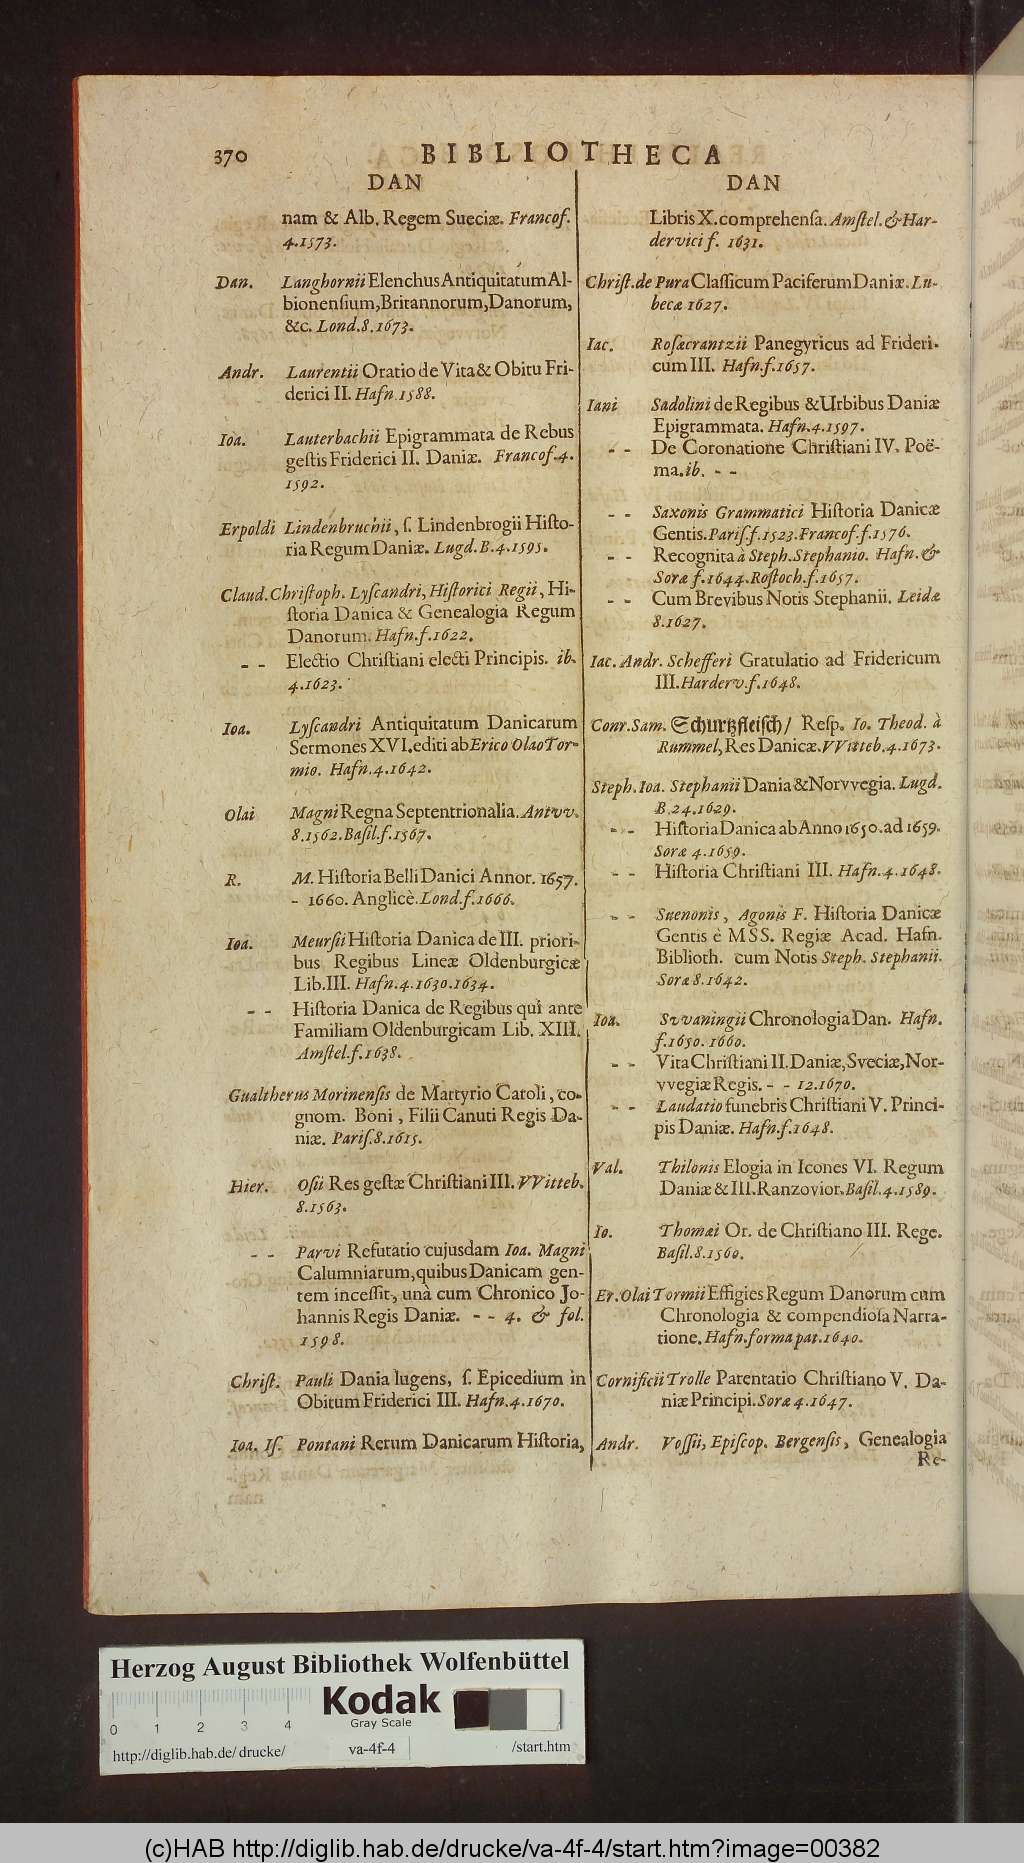 370 BIBLIOTHECA
DAN
nam & Alb. Regem Sueciæ. Francof.
4.1573.
Dan. Langhornii Elenchus Antiquitatum Al-
bionensium, Britannorum, Danorum,
&c. Lond. 8. 1673.
Andr. Laurentii Oratio de Vita & Obitu Fri-
derici II. Hafn. 1588.
Ioa. Lauterbachii Epigrammata de Rebus
gestis Friderici II. Daniæ. Francof. 4.
1592.
Erpoldi Lindenbruchii, ſ. Lindenbrogii Hiſto-
ria Regum Daniæ. Lugd. B. 4. 1595.
Claud. Chriſtoph. Lyſcandri, Hiſtorici Regii, Hi-
ſtoria Danica & Genealogia Regum
Danorum. Hafn. f. 1622.
- - Electio Chriſtiani electi Principis. ib.
4. 1623.
Ioa. Lyſcandri Antiquitatum Danicarum
Sermones XVI. editi ab Erico Olao Tor-
mio. Hafn. 4. 1642.
Olai Magni Regna Septentrionalia. Antvv.
8. 1562. Baſil. f. 1567.
R. M. Hiſtoria Belli Danici Annor. 1657.
- 1660. Anglicè. Lond. f. 1666.
Ioa. Meurſii Hiſtoria Danica de III. priori-
bus Regibus Lineæ Oldenburgicæ
Lib. III. Hafn. 4. 1630. 1634.
- - Hiſtoria Danica de Regibus qui ante
Familiam Oldenburgicam Lib. XIII.
Amſtel. f. 1638.
Gualtherus Morinenſis de Martyrio Caroli, co-
gnom. Boni, Filii Canuti Regis Da-
niæ. Pariſ. 8. 1615.
Hier. Oſii Res geſtæ Chriſtiani III. VVitteb.
8. 1563.
- - Parvi Refutatio cujusdam Ioa. Magni
Calumniarum, quibus Danicam gen-
tem inceſſit, unà cum Chronico Jo-
hannis Regis Daniæ. - - 4. & fol.
1598.
Chriſt. Pauli Dania lugens, ſ. Epicedium in
Obitum Friderici III. Hafn. 4. 1670.
Ioa. Iſ. Pontani Rerum Danicarum Hiſtoria,
DAN
Libris X. comprehenſa. Amſtel. & Har-
dervici f. 1631.
Chriſt. de Pura Claſſicum Paciferum Daniæ. Lu-
becæ 1627.
Iac. Roſæcrantzii Panegyricus ad Frideri-
cum III. Hafn. f. 1657.
Iani Sadolini de Regibus & Urbibus Daniæ
Epigrammata. Hafn. 4. 1597.
- - De Coronatione Chriſtiani IV. Poë-
ma. ib. - -
- - Saxonis Grammatici Hiſtoria Danicæ
Gentis. Pariſ. f. 1523. Francof. f. 1576.
- - Recognita à Steph. Stephanio. Hafn. &
Soræ f. 1644. Roſtoch. f. 1657.
- - Cum Brevibus Notis Stephanii. Leidæ
8. 1627.
Iac. Andr. Schefferi Gratulatio ad Fridericum
III. Harderv. f. 1648.
Conr. Sam. Schurtzfleiſch/ Reſp. Io. Theod. à
Rummel, Res Danicæ. VVitteb. 4. 1673.
Steph. Ioa. Stephanii Dania & Norvvegia. Lugd.
B. 24. 1629.
- - Hiſtoria Danica ab Anno 1650. ad 1659.
Soræ 4. 1659.
- - Hiſtoria Chriſtiani III. Hafn. 4. 1648.
- - Suenonis, Agonis F. Hiſtoria Danicæ
Gentis è MSS. Regiæ Acad. Hafn.
Biblioth. cum Notis Steph. Stephanii.
Soræ 8. 1642.
Ioa. Svvaningii Chronologia Dan. Hafn.
f. 1650. 1660.
- - Vita Chriſtiani II. Daniæ, Sveciæ, Nor-
vvegiæ Regis. - - 12. 1670.
- - Laudatio funebris Chriſtiani V. Princi-
pis Daniæ. Hafn. f. 1648.
Val. Thilonis Elogia in Icones VI. Regum
Daniæ & III. Ranzovior. Baſil. 4. 1589.
Io. Thomæi Or. de Chriſtiano III. Rege.
Baſil. 8. 1560.
Er. Olai Tormii Effigies Regum Danorum cum
Chronologia & compendioſa Narra-
tione. Hafn. forma pat. 1640.
Cornificii Trolle Parentatio Chriſtiano V. Da-
niæ Principi. Soræ 4. 1647.
Andr. Voſſii, Epiſcop. Bergenſis, Genealogia
Re-
Herzog August Bibliothek Wolfenbüttel
Kodak
Gray Scale
0 1 2 3 4
http://diglib.hab.de/drucke/ va-4f-4 /start.htm
(c)HAB http://diglib.hab.de/drucke/va-4f-4/start.htm?image=00382